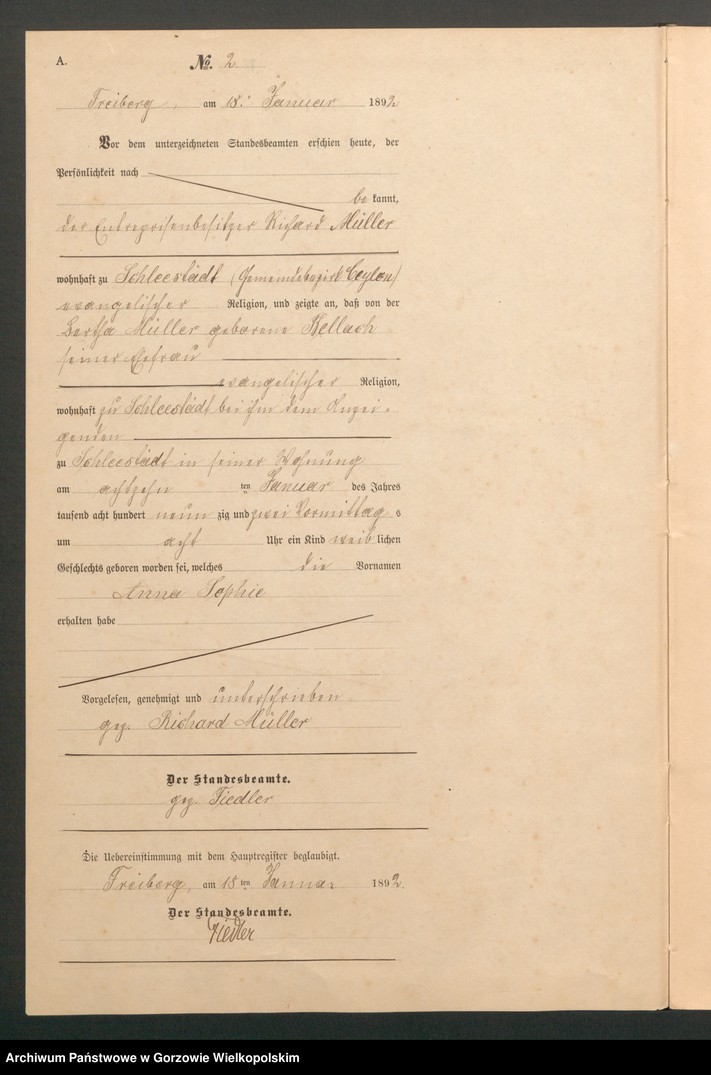 A.
No. 2
Freiberg, am 18. Januar 1892
Vor dem unterzeichneten Standesbeamten erschien heute, der
Persönlichkeit nach
be kannt,
der Entreprisenbesitzer Richard Müller
wohnhaft zu Schleestädt (Gemeindebezirk Ceylon)
evangelischer Religion, und zeigte an, daß von der
Bertha Müller geborene Kellach
seiner Ehefrau
evangelischer Religion,
wohnhaft zu Schleestädt bei ihm dem Anzei-
genden
zu Schleestädt in seiner Wohnung
am achtzehn ten Januar des Jahres
tausend acht hundert neun zig und zwei Vormittag s
um acht Uhr ein Kind weib lichen
Geschlechts geboren worden sei, welches die Vornamen
Anna Sophie
erhalten habe
Vorgelesen, genehmigt und unterschrieben
gez. Richard Müller
Der Standesbeamte.
gez. Fiedler
Die Uebereinstimmung mit dem Hauptregister beglaubigt.
Freiberg, am 18 ten Januar 1892.
Der Standesbeamte.
Fiedler
Archiwum Państwowe w Gorzowie Wielkopolskim